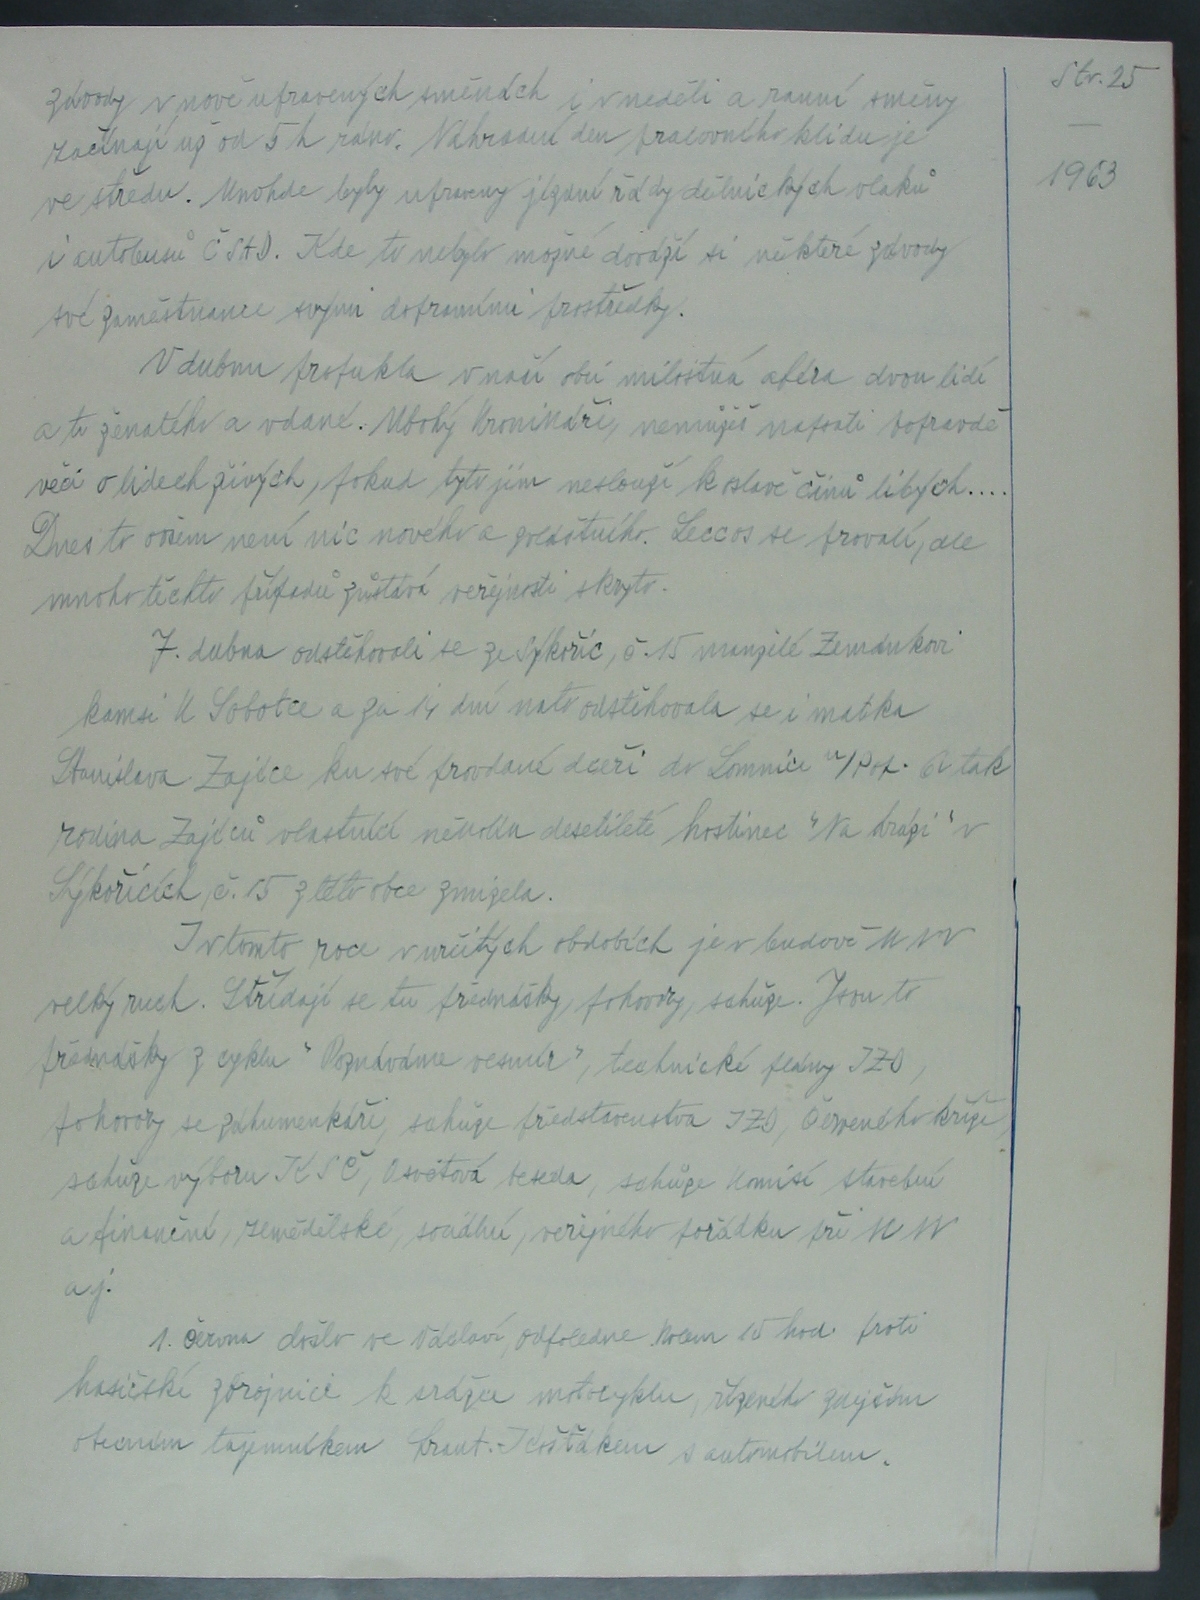 Str. 25
1963
závody v nově upravených směnách i v neděli a ranní směny
začínají už od 5 h ráno. Náhradní den pracovního klidu je
ve středu. Mnohde byly upraveny jízdní řády dělnických vlaků
i autobusů ČSAD. Kde to nebylo možné dováží si některé závody
své zaměstnance svými dopravními prostředky.
V dubnu propukla v naší obci milostná aféra dvou lidí
a to ženatého a vdané. Ubohý kronikáři, nemůžeš napsati popravdě
věci o lidech živých, pokud tyto jim neslouží k oslavě činů libých....
Dnes to ovšem není nic nového a zvláštního. Leccos se provalí, ale
mnoho těchto případů zůstává veřejnosti skryto.
7. dubna odstěhovali se ze Sýkořic, č. 15 manželé Zemánkovi
kamsi k Sobotce a za 14 dní nato odstěhovala se i matka
Stanislava Zajíce ku své provdané dceři do Lomnice n/Pop. A tak
rodina Zajíců vlastnící několik desetiletí hostinec "Na hrázi" v
Sýkořicích, č. 15 z této obce zmizela.
I v tomto roce v určitých obdobích je v budově MNV
velký ruch. Střídají se tu přednášky, pohovory, schůze. Jsou to
přednášky z cyklu "Poznáváme vesmír", technické plány JZD,
pohovory se záhumenkáři, schůze představenstva JZD, Červeného kříže,
schůze výboru KSČ, Osvětová beseda, schůze komisí stavební
a finanční, zemědělské, sociální, veřejného pořádku při MNV
a j.
1. června došlo ve Václaví, odpoledne kolem 15 hod. proti
hasičské zbrojnici k srážce motocyklu, řízeného zdejším
obecním tajemníkem Frant. Košťákem s automobilem.